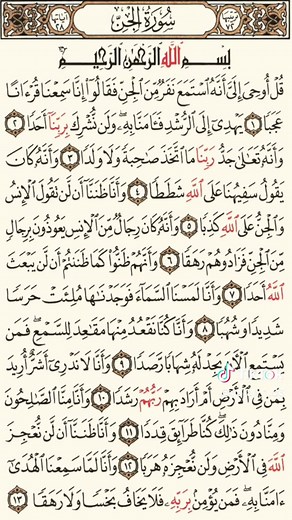 سُورَةُ الْجِنِّ
بِسْمِ اللَّهِ الرَّحْمَٰنِ الرَّحِيمِ
قُلْ أُوحِيَ إِلَيَّ أَنَّهُ اسْتَمَعَ نَفَرٌ مِّنَ الْجِنِّ فَقَالُوا إِنَّا سَمِعْنَا قُرْءَانًا
عَجَبًا ١ يَهْدِي إِلَى الرُّشْدِ فَـَٔامَنَّا بِهِۦ وَلَن نُّشْرِكَ بِرَبِّنَا أَحَدًا ٢
وَأَنَّهُ تَعَالَىٰ جَدُّ رَبِّنَا مَا اتَّخَذَ صَاحِبَةً وَلَا وَلَدًا ٣ وَأَنَّهُ كَانَ
يَقُولُ سَفِيهُنَا عَلَى اللَّهِ شَطَطًا ٤ وَأَنَّا ظَنَنَّا أَن لَّن تَقُولَ الْإِنسُ
وَالْجِنُّ عَلَى اللَّهِ كَذِبًا ٥ وَأَنَّهُ كَانَ رِجَالٌ مِّنَ الْإِنسِ يَعُوذُونَ بِرِجَالٍ
مِّنَ الْجِنِّ فَزَادُوهُمْ رَهَقًا ٦ وَأَنَّهُمْ ظَنُّوا كَمَا ظَنَنتُمْ أَن لَّن يَبْعَثَ
اللَّهُ أَحَدًا ٧ وَأَنَّا لَمَسْنَا السَّمَاءَ فَوَجَدْنَاهَا مُلِئَتْ حَرَسًا
شَدِيدًا وَشُهُبًا ٨ وَأَنَّا كُنَّا نَقْعُدُ مِنْهَا مَقَاعِدَ لِلسَّمْعِ فَمَن
يَسْتَمِعِ الْآنَ يَجِدْ لَهُ شِهَابًا رَّصَدًا ٩ وَأَنَّا لَا نَدْرِي أَشَرٌّ أُرِيدَ
بِمَن فِي الْأَرْضِ أَمْ أَرَادَ بِهِمْ رَبُّهُمْ رَشَدًا ١٠ وَأَنَّا مِنَّا الصَّالِحُونَ
وَمِنَّا دُونَ ذَٰلِكَ كُنَّا طَرَائِقَ قِدَدًا ١١ وَأَنَّا ظَنَنَّا أَن لَّن نُّعْجِزَ
اللَّهَ فِي الْأَرْضِ وَلَن نُّعْجِزَهُ هَرَبًا ١٢ وَأَنَّا لَمَّا سَمِعْنَا الْهُدَىٰ
ءَامَنَّا بِهِۦ فَمَن يُؤْمِن بِرَبِّهِۦ فَلَا يَخَافُ بَخْسًا وَلَا رَهَقًا ١٣